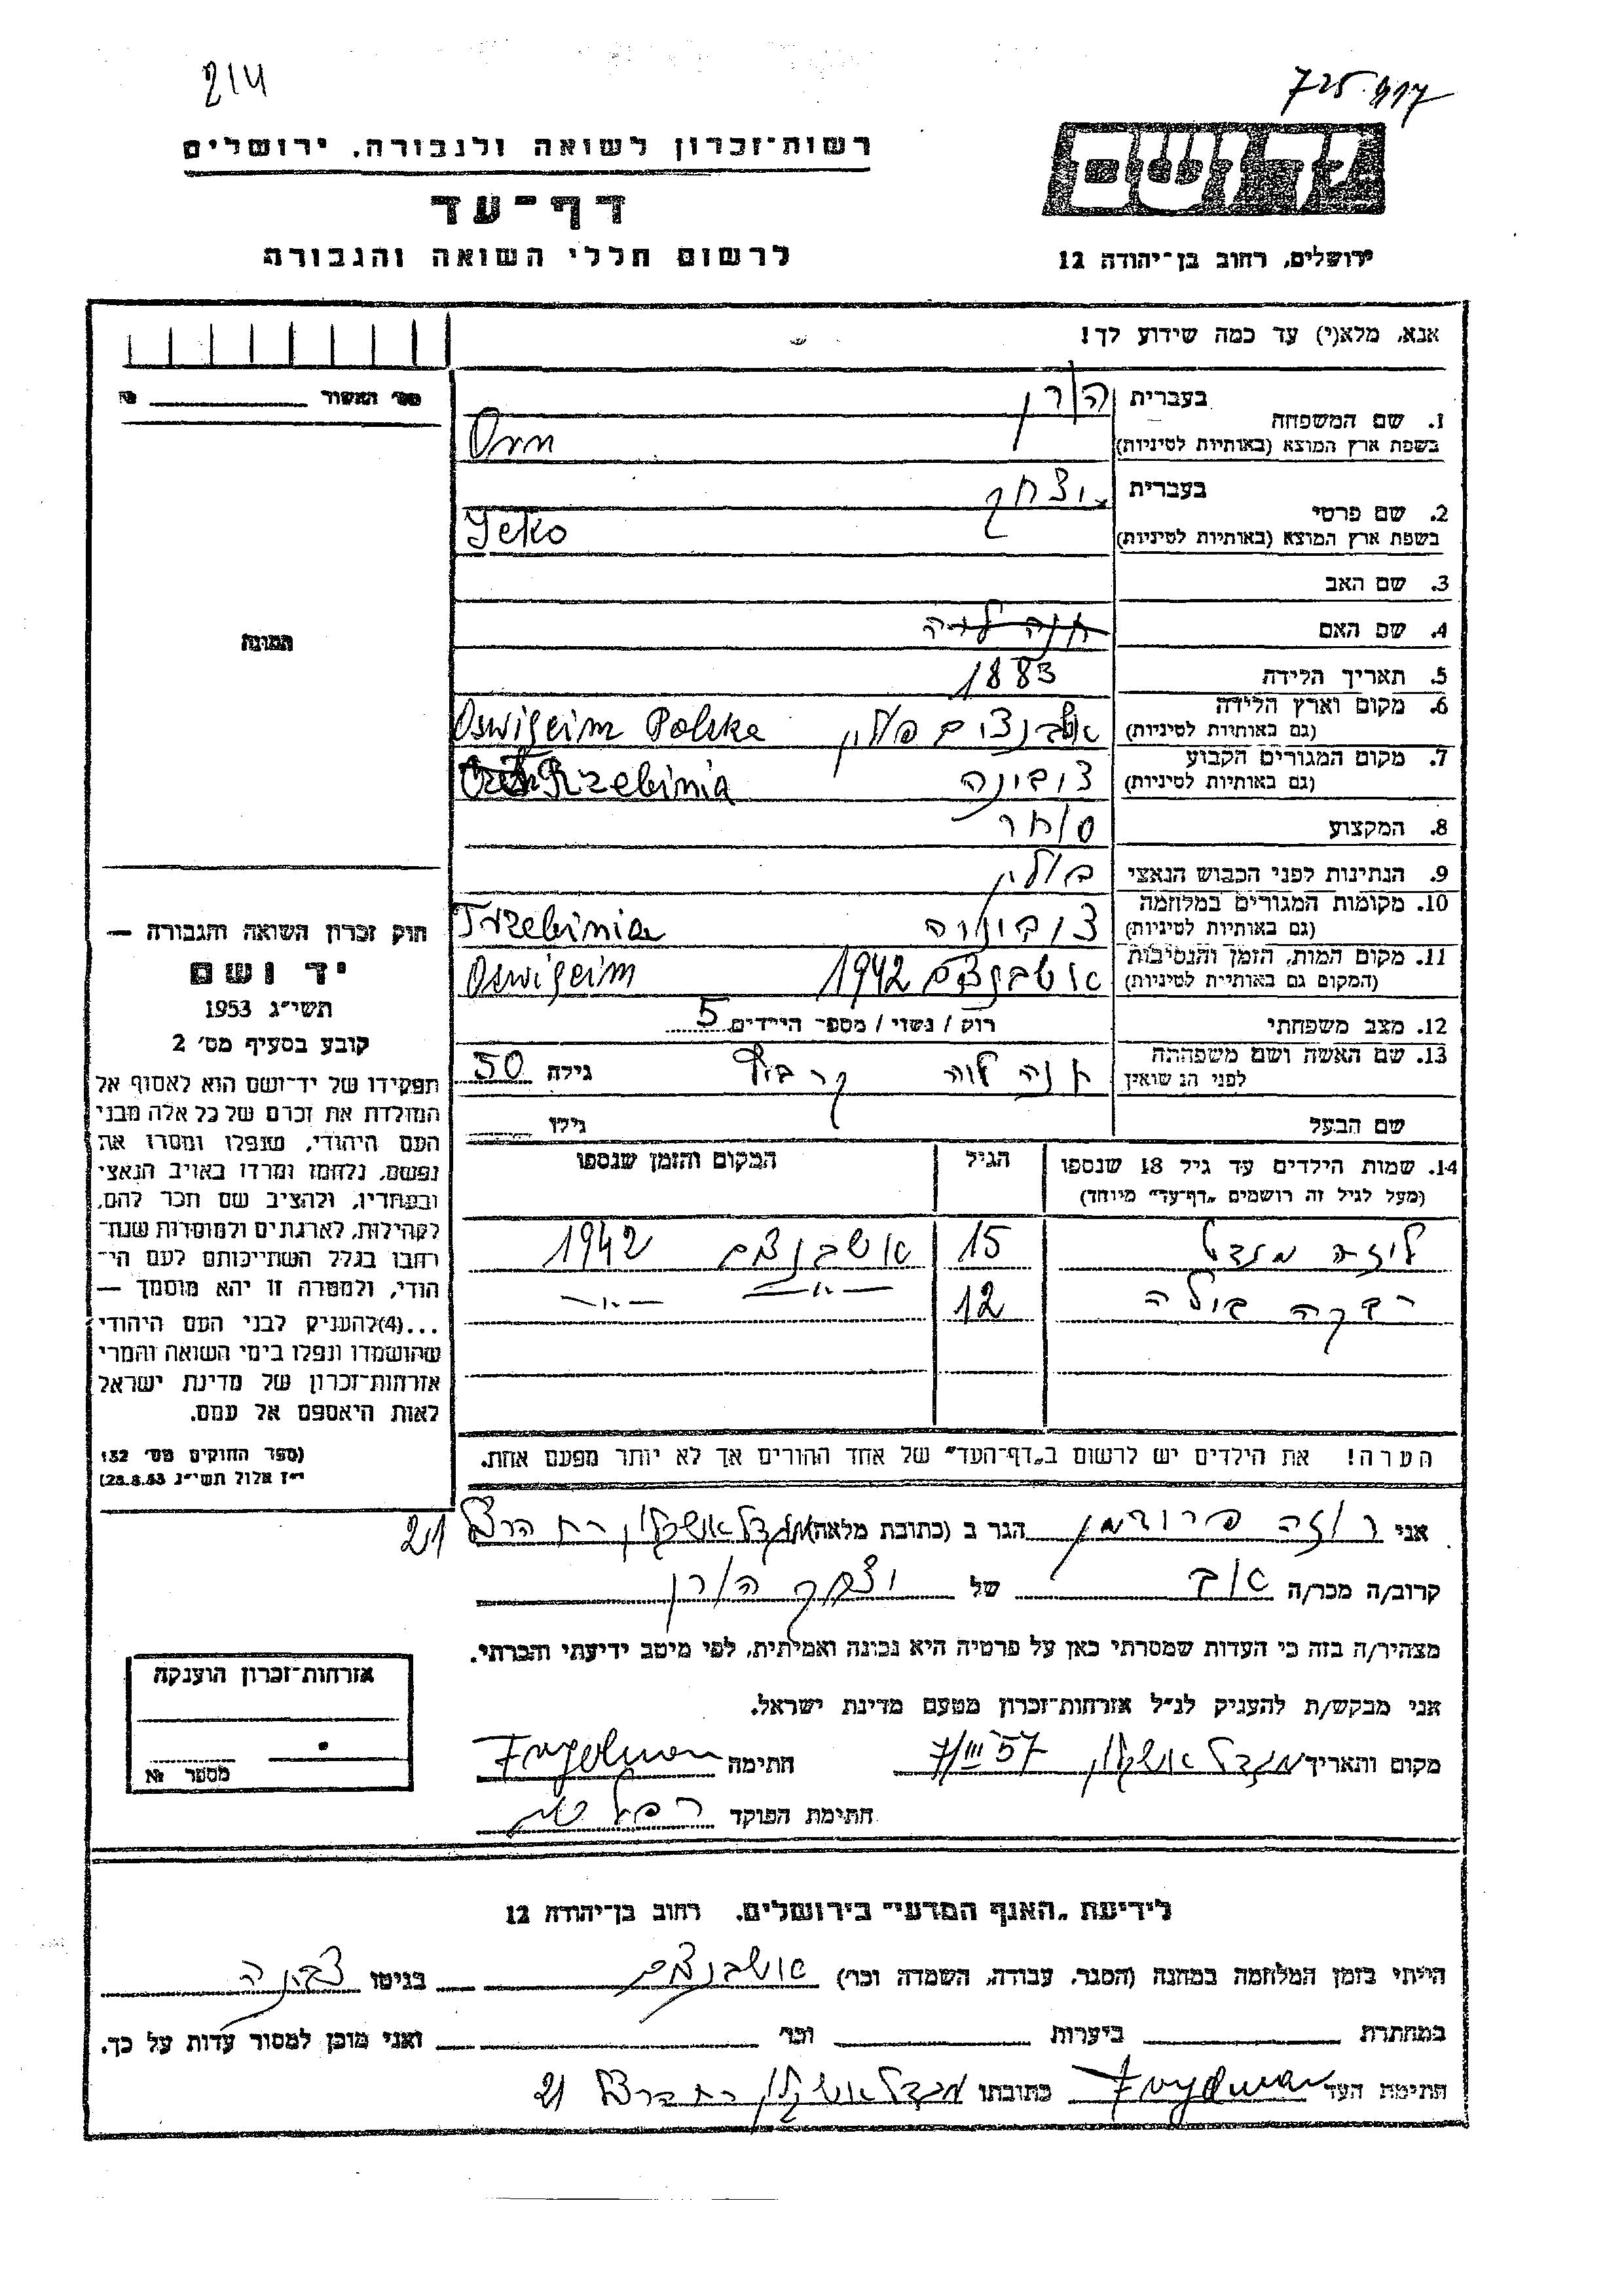 214
725.917
רשות־זכרון לשואה ולגבורה, ירושלים
דף־עד
לרשום חללי השואה והגבורה
ידושם
ירושלים, רחוב בן־יהודה 12
אנא, מלא(י) עד כמה שידוע לך!
מס׳ האשור
1. שם המשפחה בעברית הורן
בשפת ארץ המוצא (באותיות לטיניות) Orn
2. שם פרטי בעברית יצחק
בשפת ארץ המוצא (באותיות לטיניות) Jeko
3. שם האב
4. שם האם חנה לאה
5. תאריך הלידה 1883
6. מקום וארץ הלידה (גם באותיות לטיניות) פולין Oswigeim Polska
7. מקום המגורים הקבוע (גם באותיות לטיניות) צובינה Rzebinia
8. המקצוע סוחר
9. הנתינות לפני הכבוש הנאצי פולין
10. מקומות המגורים במלחמה (גם באותיות לטיניות) צובינה Trzebinia
11. מקום המות, הזמן והנסיבות (המקום גם באותיות לטיניות) אושבנצים 1942 Oswigeim
12. מצב משפחתי רוק / נשוי / מספר הילדים 5
13. שם האשה ושם משפחתה לפני הנשואין חנה לאה גילה 50
שם הבעל גילו
14. שמות הילדים עד גיל 18 שנספו
(מעל לגיל זה רושמים „דף־עד” מיוחד)
הגיל
המקום והזמן שנספו
מנדל 15 אושבנצים 1942
רבקה בילה 12 —״— —״—
הערה! את הילדים יש לרשום ב„דף־העד” של אחד ההורים אך לא יותר מפעם אחת.
התמונה
חוק זכרון השואה והגבורה —
יד ושם
תשי״ג 1953
קובע בסעיף מס׳ 2
תפקידו של יד־ושם הוא לאסוף אל
המולדת את זכרם של כל אלה מבני
העם היהודי, שנפלו ומסרו את
נפשם, נלחמו ומרדו באויב הנאצי
ובעוזריו, ולהציב שם וזכר להם,
לקהילות, לארגונים ולמוסדות שנח־
רבו בגלל השתייכותם לעם הי־
הודי, ולמטרה זו יהא מוסמך —
...(4)להעניק לבני העם היהודי
שהושמדו ונפלו בימי השואה והמרי
אזרחות־זכרון של מדינת ישראל
לאות היאספם אל עמם.
(ספר החוקים מס׳ 132
י״ז אלול תשי״ג 28.8.53)
אני רוזה פרידמן הגר ב (כתובת מלאה) מגדל אשקלון רח הרצל 21
קרוב/ה מכר/ה אב של יצחק הורן
מצהיר/ה בזה כי העדות שמסרתי כאן על פרטיה היא נכונה ואמיתית, לפי מיטב ידיעתי והכרתי.
אני מבקש/ת להעניק לנ״ל אזרחות־זכרון מטעם מדינת ישראל.
מקום ותאריך מגדל אשקלון 7/III 57 חתימה
חתימת הפוקד
אזרחות־זכרון הוענקה
מספר №
לידיעת „האגף המדעי” בירושלים, רחוב בן־יהודה 12
הייתי בזמן המלחמה במחנה (הסגר, עבודה, השמדה וכר׳) אושבנצים בגיטו צבינה
במחתרת ביערות וכר׳ ואני מוכן למסור עדות על כך.
חתימת העד כתובתו מגדל אשקלון רח הרצל 21